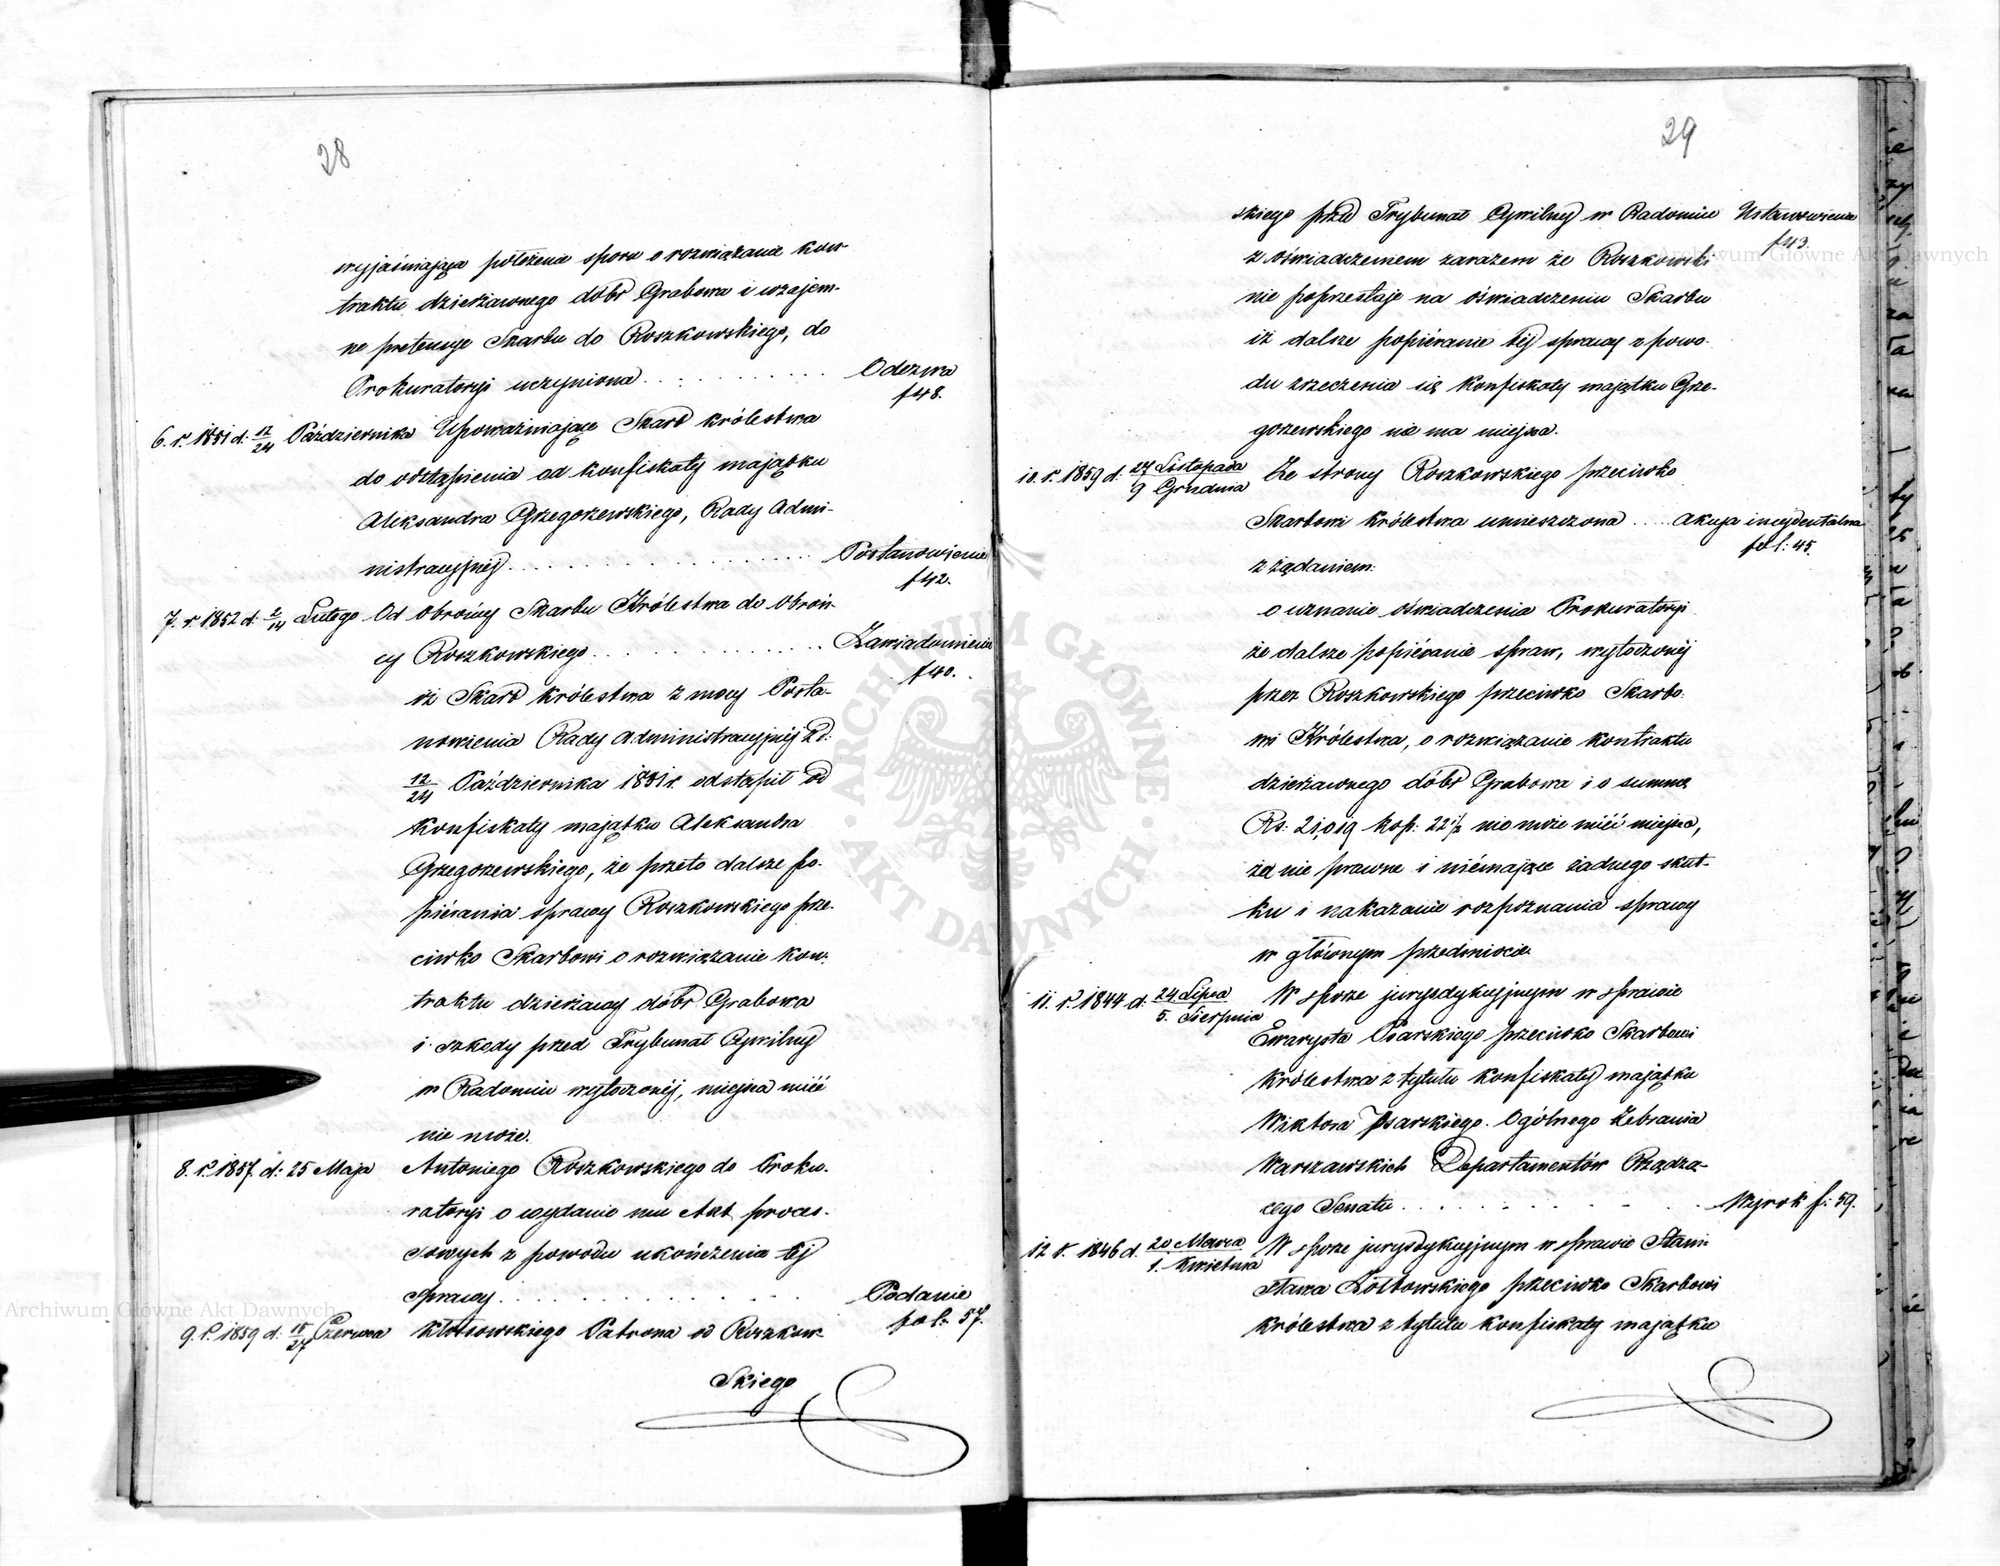 28
wyjaśniająca położenie sporu o rozwiązanie kon-
traktu dzierżawnego dóbr Grabowa i wzajem-
ne pretensye Skarbu do Roszkowskiego, do
Prokuratoryi uczyniona . . . . . . . . . . . Odezwa
f 48.
6. r. 1851 d. 12/24 Października Upoważniające Skarb królestwa
do odstąpienia od konfiskaty majątku
Aleksandra Grzegorzewskiego, Rady Admi-
nistracyjnéj . . . . . . . . . . . . . . . . . Postanowienie
f 42.
7. r. 1852 d. 2/14 Lutego Od obrońcy Skarbu Królestwa do Obroń-
cy Roszkowskiego . . . . . . . . . . . . . Zawiadomienie
f 40.
iż Skarb królestwa z mocy Posta-
nowienia Rady Administracyjnéj z d:
12/24 Października 1851 r. odstąpił od
konfiskaty majątku Aleksandra
Grzegorzewskiego, że przeto dalsze po-
piérania sprawy Roszkowskiego prze-
ciwko Skarbowi o rozwiązanie kon-
traktu dzierżawy dóbr Grabowa
i szkody przed Trybunał Cywilny
w Radomiu wytoczonéj, miejsca mieć
nie może.
8. r. 1857. d: 25 Maja Antoniego Roszkowskiego do Proku-
ratoryi o wydanie mu Akt proces-
sowych z powodu ukończenia téj
sprawy . . . . . . . . . . . . . . Podanie
fol: 57.
9. r. 1859 d. 15/27 Czerwca Kłossowskiego Patrona od Roszkow-
Skiego
29
skiego przed Trybunał Cywilny w Radomiu Ustanowienie
f 43.
z oświadczeniem zarazem że Roszkowski
nie poprzestaje na oświadczeniu Skarbu
iż dalsze popiéranie téj sprawy z powo-
du zrzeczenia się konfiskaty majątku Grze-
gorzewskiego nie ma miejsca.
10. r. 1859 d. 27 Listopada/9 Grudnia Ze strony Roszkowskiego przeciwko
Skarbowi królestwa umieszczona . . . . Akcya incydentalna
fol: 45.
z żądaniem:
o uznanie oświadczenia Prokuratoryi
że dalsze popiéranie spraw, wytoczonéj
przez Roszkowskiego przeciwko Skarbo-
wi Królestwa, o rozwiązanie kontraktu
dzierżawnego dóbr Grabowa i o summę
Rs: 21,019 kop: 22 1/2 nie może mieć miejsca,
za nie prawne i niémające żadnego skut-
ku i nakazanie rozpoznania sprawy
w głównym przedmiocie.
11. r. 1844 d. 24 Lipca/5. Sierpnia W sporze jurysdykcyjnym w sprawie
Ewarysta Psarskiego przeciwko Skarbowi
królestwa z tytułu konfiskaty majątku
Wiktora Psarskiego. Ogólnego Zebrania
Warszawskich Departamentów Rządzą-
cego Senatu . . . . . . . . . . . Wyrok f: 59.
12 r. 1846 d. 20 Marca/1. Kwietnia W sporze jurysdykcyjnym w sprawie Stani-
sława Żółtowskiego przeciwko Skarbowi
królestwa z tytułu konfiskaty majątku
ARCHIWUM GŁÓWNE AKT DAWNYCH
Archiwum Główne Akt Dawnych
Archiwum Główne Akt Dawnych